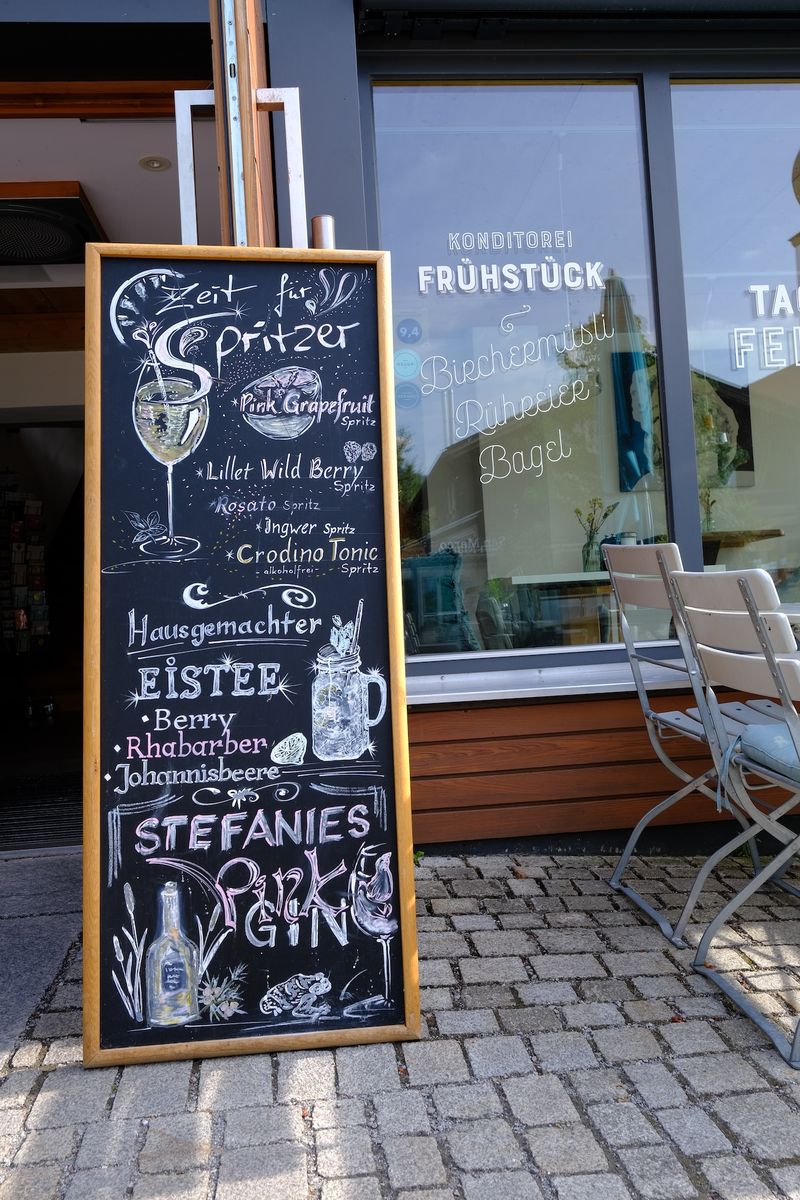 Zeit für
Spritzer
Pink Grapefruit
Spritz
Lillet Wild Berry
Spritz
Rosato Spritz
Ingwer Spritz
Crodino Tonic
-alkoholfrei- Spritz
Hausgemachter
EISTEE
• Berry
• Rhabarber
• Johannisbeere
STEFANIES
Pink
GIN
KONDITOREI
FRÜHSTÜCK
Birchermüsli
Rühreier
Bagel
9,4
TA
FEL